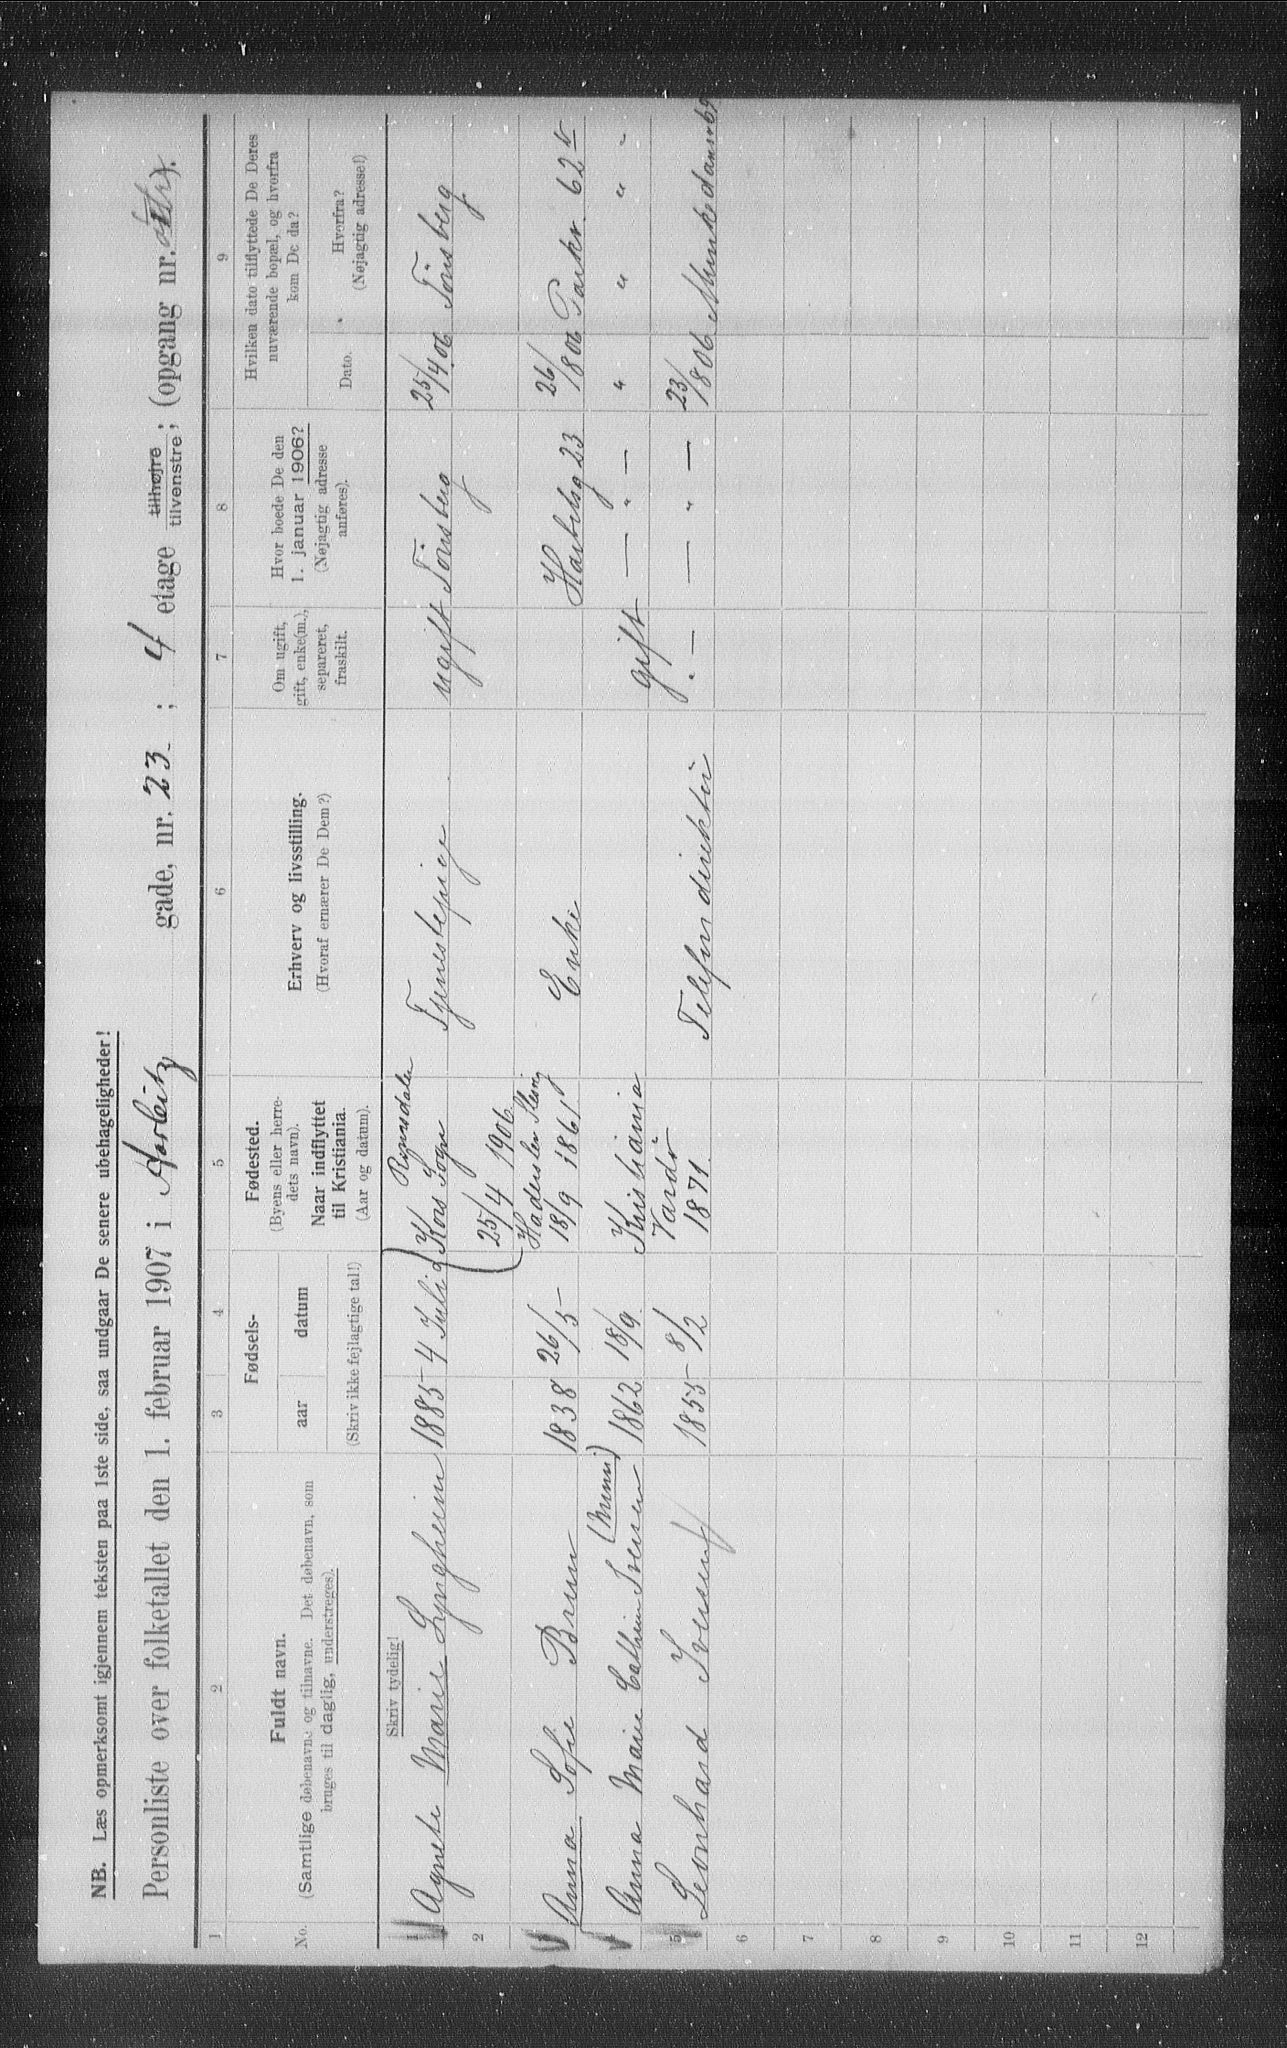 NB. Læs opmerksomt igjennem teksten paa 1ste side, saa undgaar De senere ubehageligheder!
Personliste over folketallet den 1. februar 1907 i Harbitz gade, nr. 23 ; 4 etage tilhøjre tilvenstre; (opgang nr.
1 2 3 4 5 6 7 8 9
No.
Fuldt navn.
(Samtlige døbenavne og tilnavne. Det døbenavn, som
bruges til daglig, understreges).
Fødsels-
aar datum
(Skriv ikke fejlagtige tal!)
Fødested.
(Byens eller herre-
dets navn).
Naar indflyttet
til Kristiania.
(Aar og datum).
Erhverv og livsstilling.
(Hvoraf ernærer De Dem?)
Om ugift,
gift, enke(m.),
separeret,
fraskilt.
Hvor boede De den
1. januar 1906?
(Nøjagtig adresse
anføres).
Hvilken dato tilflyttede De Deres
nuværende bopæl, og hvorfra
kom De da?
Dato.
Hvorfra?
(Nøjagtig adresse!)
Skriv tydelig!
Romsdalen
1 Agnete Marie Lyngheim 1885 4 Juli Kors Sogn Tjenestepige ugift Tønsberg 25/4 06 Tønsberg
2 25/4 1906
Haderslev Slesvig
Anna Sofie Bruun 1838 26/5 18/9 1861 Enke Harbitzg 23 26/8 06 Parkv. 62
4 Anna Marie Cathrine Iversen 1862 18/9 Kristiania gift — " — " " " "
5 Leonhard Iversen 1855 8/2 Vardø Telefondirektør " — — " — 23/8 06 Munkedamsv 69
1871.
6
7
8
9
10
11
12